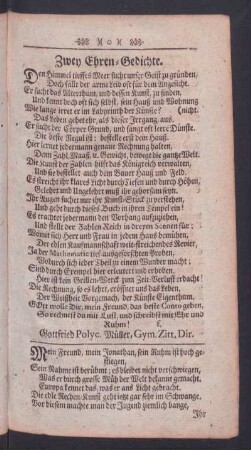 Zwey Ehren-Gedichte.
Den Himmel tieffes Meer sucht unser Geist zu gründen,
Doch fällt der arme Leib oft für dem Angesicht.
Er sucht das Alterthum, und dessen Kunst, zu finden,
Und kennt doch oft sich selbst, sein Hauß und Wohnung
Wie lange irret er im Labyrinth der Künste? (nicht.
Das Leben gehet ehr, als dieser Irrgang, aus.
Er sucht der Cörper Grund, und fängt oft leere Dünste.
Die beste Regul ist: bestelle erst dein Hauß.
Hier lernet jedermann genaue Rechnung halten,
Denn Zahl, Maaß, u. Gewicht, bewegt die gantze Welt.
Die Kunst der Zahlen hilfft das Königreich verwalten,
Und sie bestellet auch dem Bauer Hauß und Feld.
Es erreicht ihr klares Licht durch Tiefen und durch Höhen,
Gelehrt und Ungelehrt muß ihr gehorsam seyn.
Ihr Augen sicher nur ihr Kunst-Stück zu verstehen,
Und geht durch dieses Buch in ihren Tempel ein!
Es trachtet jedermann den Vorhang aufzuziehen,
Und stellt der Zahlen Reich in
Womit sich Herr und Frau in jedem Hauß bemühen,
Der edlen Kauffmannschafft weit-streichendes Revier,
Ja der Mathematic tief ausgeforschten Proben,
Wodurch sich jeder Theil zu einem Wunder macht;
Sind durch Exempel hier erleutert und erhoben.
Hier ist kein Grillen-Werck zum Zeit-Verlust erdacht!
Die Rechnung, so es lehrt, eröffnet uns das Leben,
Der Weißheit Vorgemach, der Künste Eigenthum.
GOtt wolle Dir, mein Freund, das beste Conto geben,
So rechnest du mit Lust, und schreibst mit Ehr und
Ruhm!
Gottfried Polyc. Müller, Gym. Zitt. Dir.
Mein Freund, mein Jonathan, sein Ruhm ist hoch gestiegen,
Sein Nahme ist berühmt; es bleibet nicht verschwiegen,
Was er durch grosse Müh der Welt bekannt gemacht,
Europa kennet das, was er ans Licht gebracht.
Die edle Rechen-Kunst geht jetzt gar sehr im Schwange,
Vor diesem machte man der Jugend ziemlich bange,
Ihr